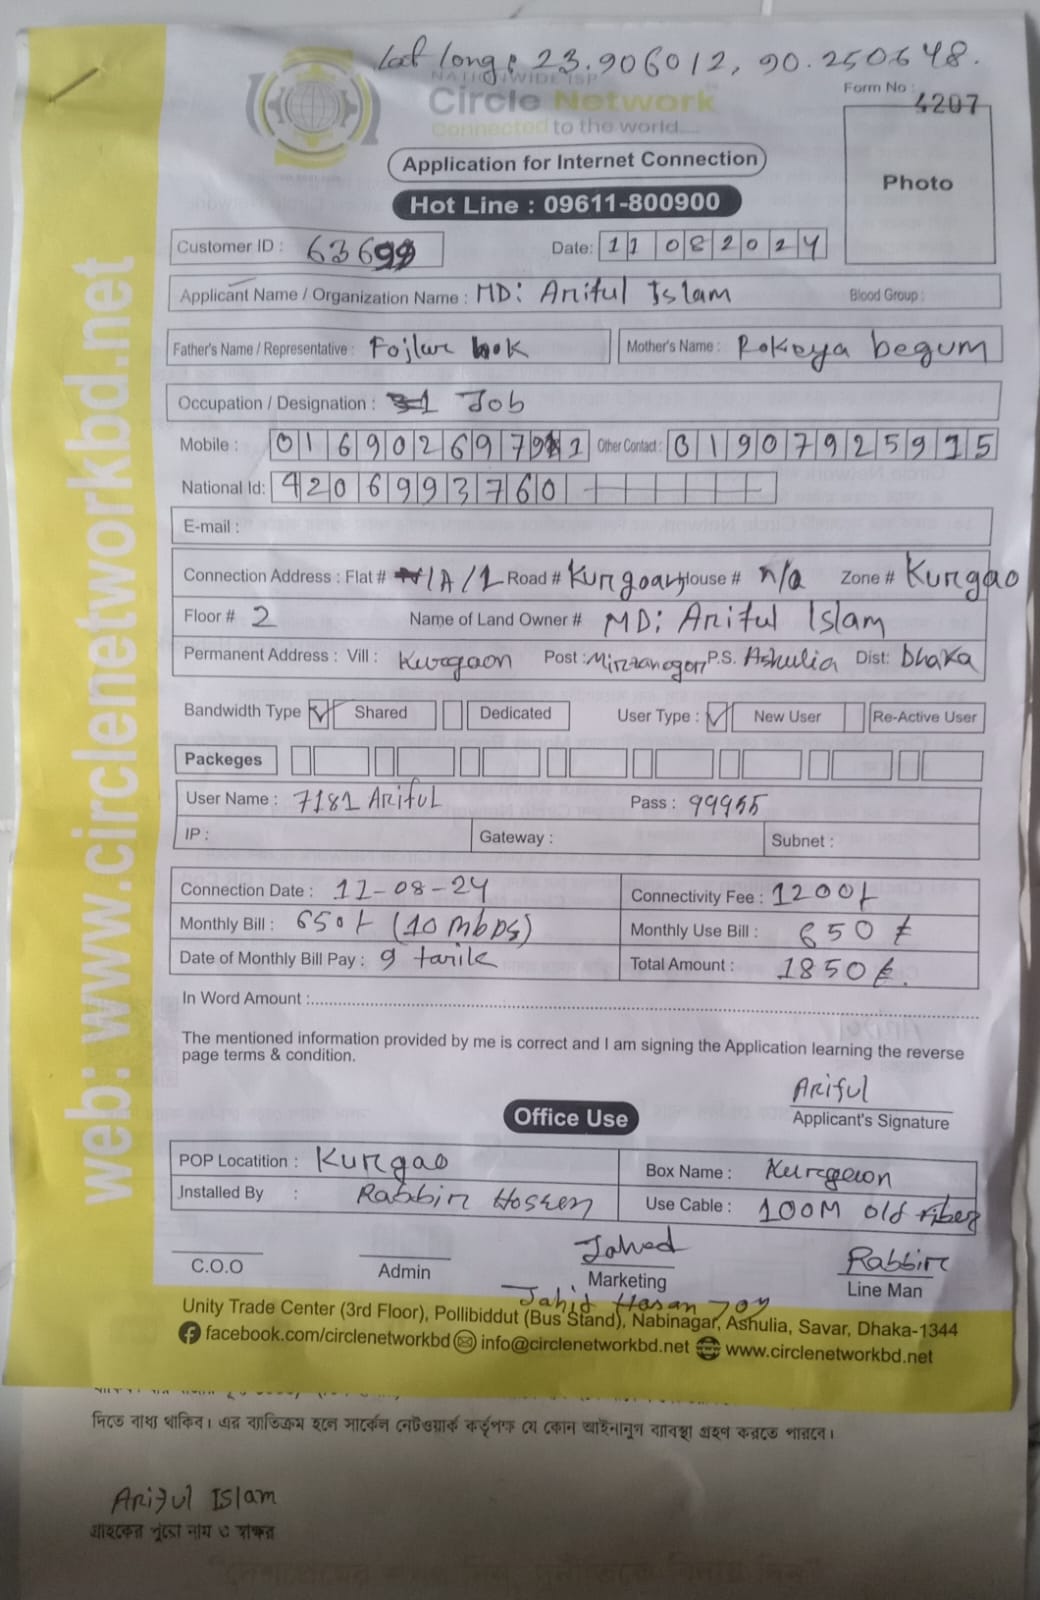 Lat long: 23.906012, 90.250648.
NATIONWIDE ISP
Circle Network
Connected to the world....
Form No : 4207
Photo
Application for Internet Connection
Hot Line : 09611-800900
Customer ID : 63699 Date: 11 08 2024
Applicant Name / Organization Name : MD: Ariful Islam Blood Group :
Father's Name / Representative : Fojlur hok Mother's Name : Rokeya begum
Occupation / Designation : Job
Mobile : 01690269791 Other Contact : 01907925915
National Id: 4206993760
E-mail :
Connection Address : Flat # 1A/1 Road # Kurgoan House # n/a Zone # Kurgao
Floor # 2 Name of Land Owner # MD: Ariful Islam
Permanent Address : Vill : Kurgaon Post : Mirzanogor P.S. Ashulia Dist: Dhaka
Bandwidth Type Shared Dedicated User Type : New User Re-Active User
Packeges
User Name : 7181 Ariful Pass : 99955
IP : Gateway : Subnet :
Connection Date : 11-08-24 Connectivity Fee : 1200/-
Monthly Bill : 650/- (10 mbps) Monthly Use Bill : 650 ৳
Date of Monthly Bill Pay : 9 tarik Total Amount : 1850৳.
In Word Amount :
The mentioned information provided by me is correct and I am signing the Application learning the reverse
page terms & condition.
Ariful
Applicant's Signature
Office Use
POP Locatition : Kurgao Box Name : Kurgaon
Jnstalled By : Rabbir Hossen Use Cable : 100M old fiber
Jahed Rabbir
C.O.O Admin Marketing Line Man
Jahid Hasan Joy
Unity Trade Center (3rd Floor), Pollibiddut (Bus Stand), Nabinagar, Ashulia, Savar, Dhaka-1344
facebook.com/circlenetworkbd info@circlenetworkbd.net www.circlenetworkbd.net
web: www.circlenetworkbd.net
দিতে বাধ্য থাকিব। এর ব্যতিক্রম হলে সার্কেল নেটওয়ার্ক কর্তৃপক্ষ যে কোন আইনানুগ ব্যাবস্থা গ্রহণ করতে পারবে।
Ariful Islam
গ্রাহকের পুরো নাম ও স্বাক্ষর